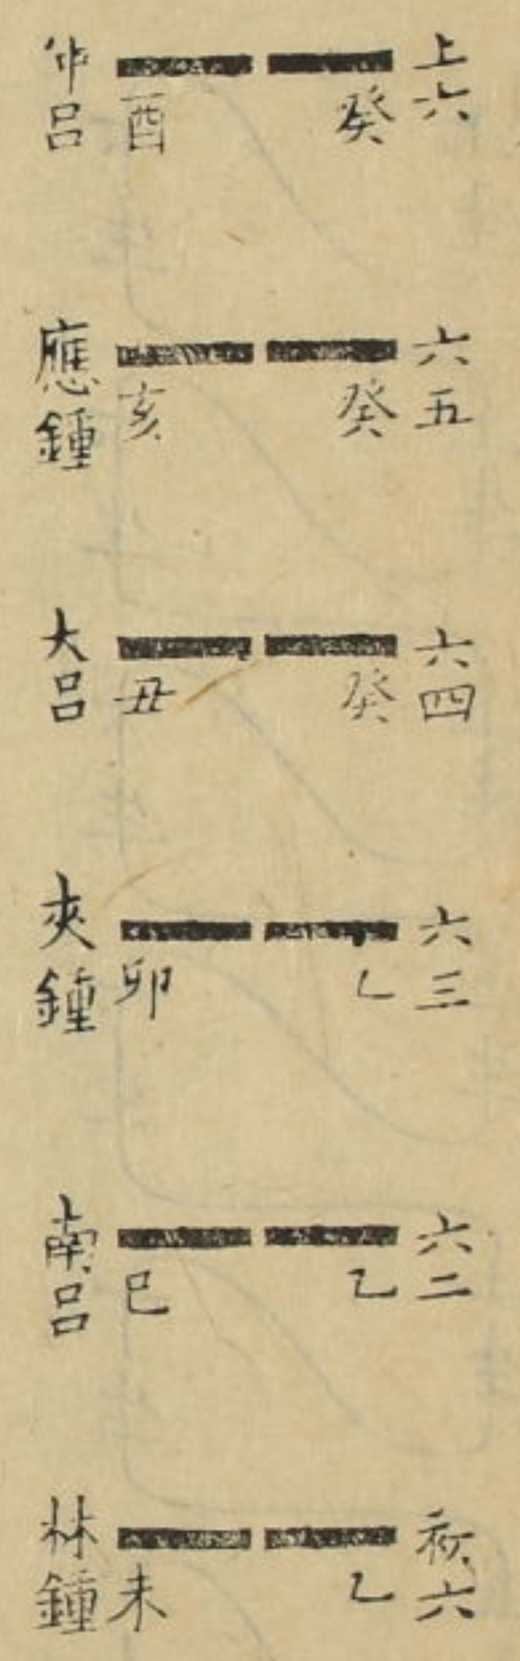 上六 癸 酉 仲呂
六五 癸 亥 應鍾
六四 癸 丑 大呂
六三 乙 卯 夾鍾
六二 乙 巳 南呂
初六 乙 未 林鍾